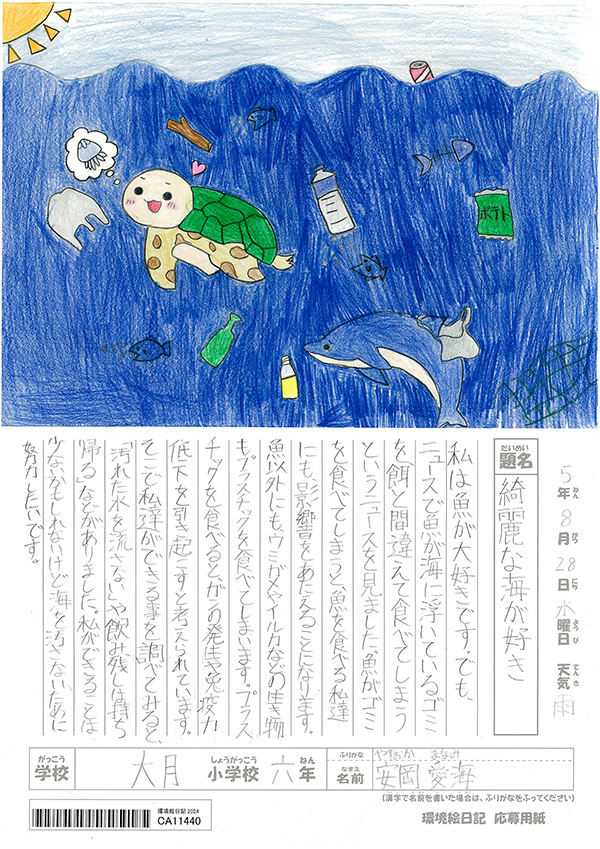 ポテト
5年 8月 28日 水曜日 天気 雨
ねん がつ にち ようび てんき
だいめい
題名
綺麗な海が好き
私は魚が大好きです。でも、
ニュースで魚が海に浮いているゴミ
を餌と間違えて食べてしまう
というニュースを見ました。魚がゴミ
を食べてしまうと、魚を食べる私達
にも、影響をあたえることになります。
魚以外にも、ウミガメやイルカなどの生き物
もプラスチックを食べてしまいます。プラス
チックを食べると、ガンの発生や免疫力
低下を引き起こすと考えられています。
そこで私達ができる事を調べてみると、
「汚れた水を流さない」や「飲み残しは持ち
帰る」などがありました。私ができることは
少ないかもしれないけど海を汚さないために
努力したいです。
がっこう しょうがっこう ねん
学校 大月 小学校 六年
ふりがな やすおか まなみ
なまえ
名前 安岡 愛海
(漢字で名前を書いた場合は、ふりがなをふってください)
環境絵日記 2024
CA11440
環境絵日記 応募用紙